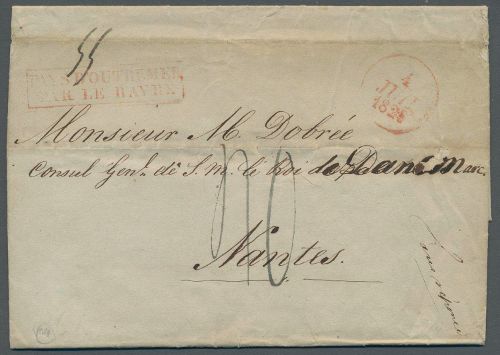 PAYS D'OUTREMER
PAR LE HAVRE
4
1828
Monsieur M. Dobrée
Consul Genl. de S. M. le Roi de Danemarc,
Nantes.